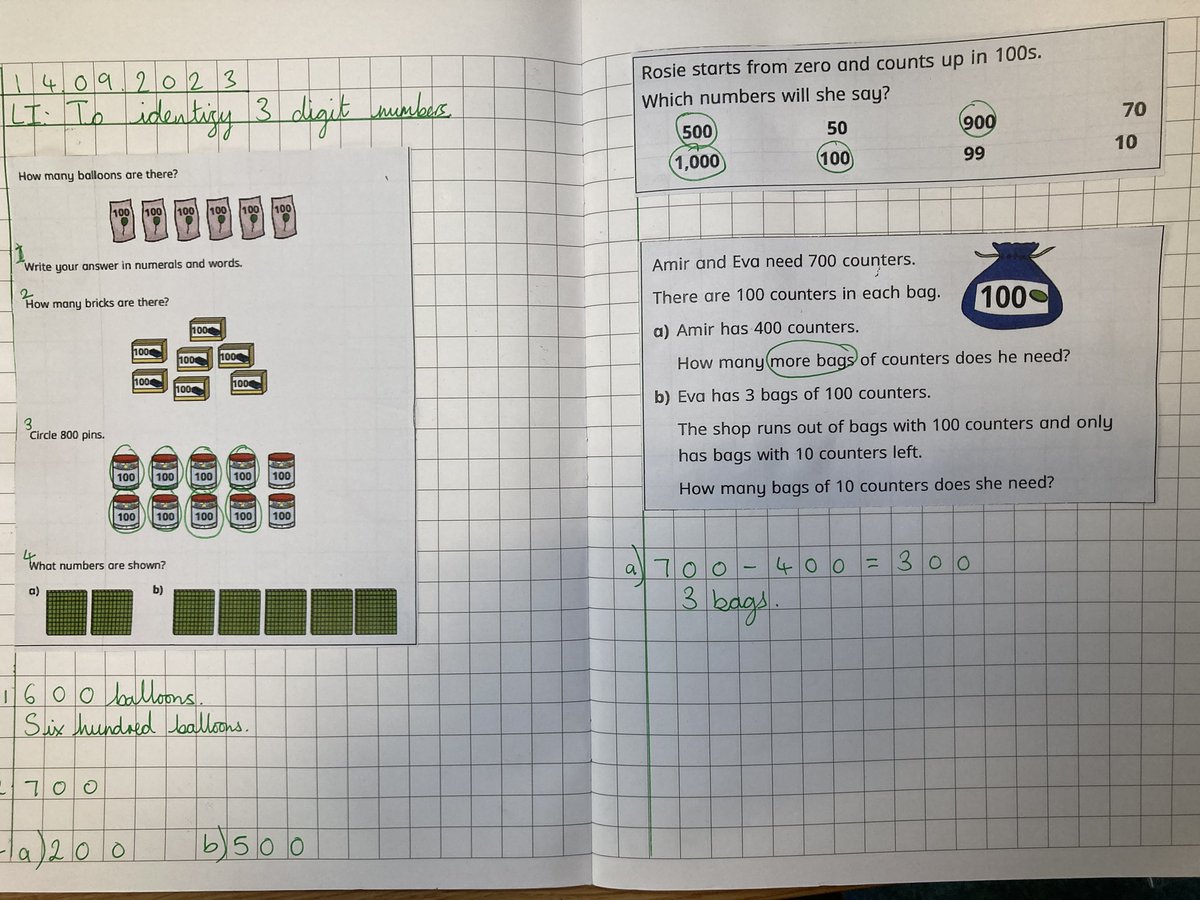 14.09.2023
LI: To identify 3 digit numbers.
How many balloons are there?
100 100 100 100 100 100
1
Write your answer in numerals and words.
2
How many bricks are there?
100
100 100 100
100 100 100
3
Circle 800 pins.
100 100 100 100 100
100 100 100 100 100
4
What numbers are shown?
a) b)
1 600 balloons.
Six hundred balloons.
2 700
4a) 200 b) 500
Rosie starts from zero and counts up in 100s.
Which numbers will she say?
500 50 900 70
1,000 100 99 10
Amir and Eva need 700 counters.
There are 100 counters in each bag.
100
a) Amir has 400 counters.
How many more bags of counters does he need?
b) Eva has 3 bags of 100 counters.
The shop runs out of bags with 100 counters and only
has bags with 10 counters left.
How many bags of 10 counters does she need?
a) 700 - 400 = 300
3 bags.